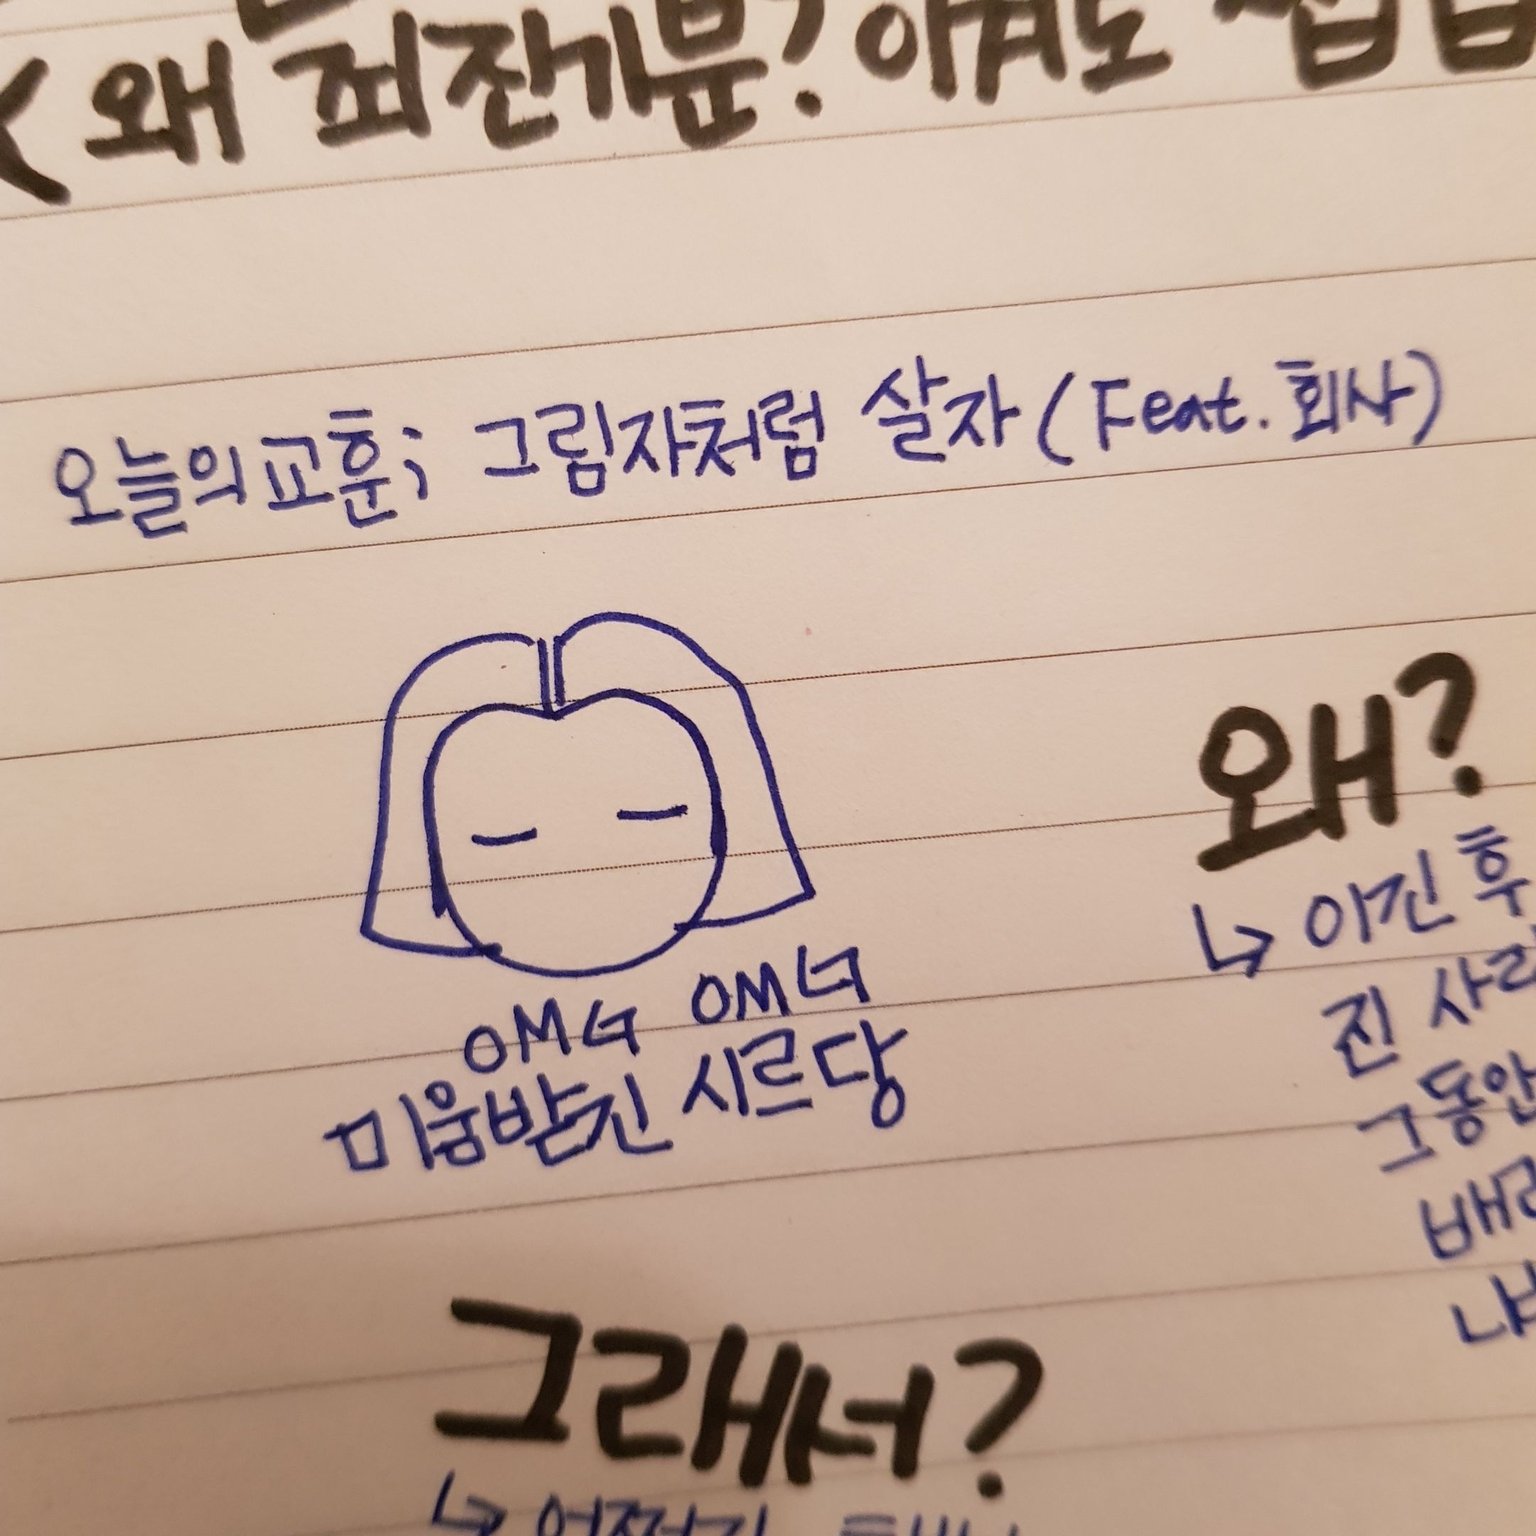 < 왜 죄진기분? 이겨도
오늘의 교훈; 그림자처럼 살자 (Feat. 회사)
왜?
↳ 이긴 후
진 사람
그동안
OMG OMG
미움받긴 시르당
그래서?